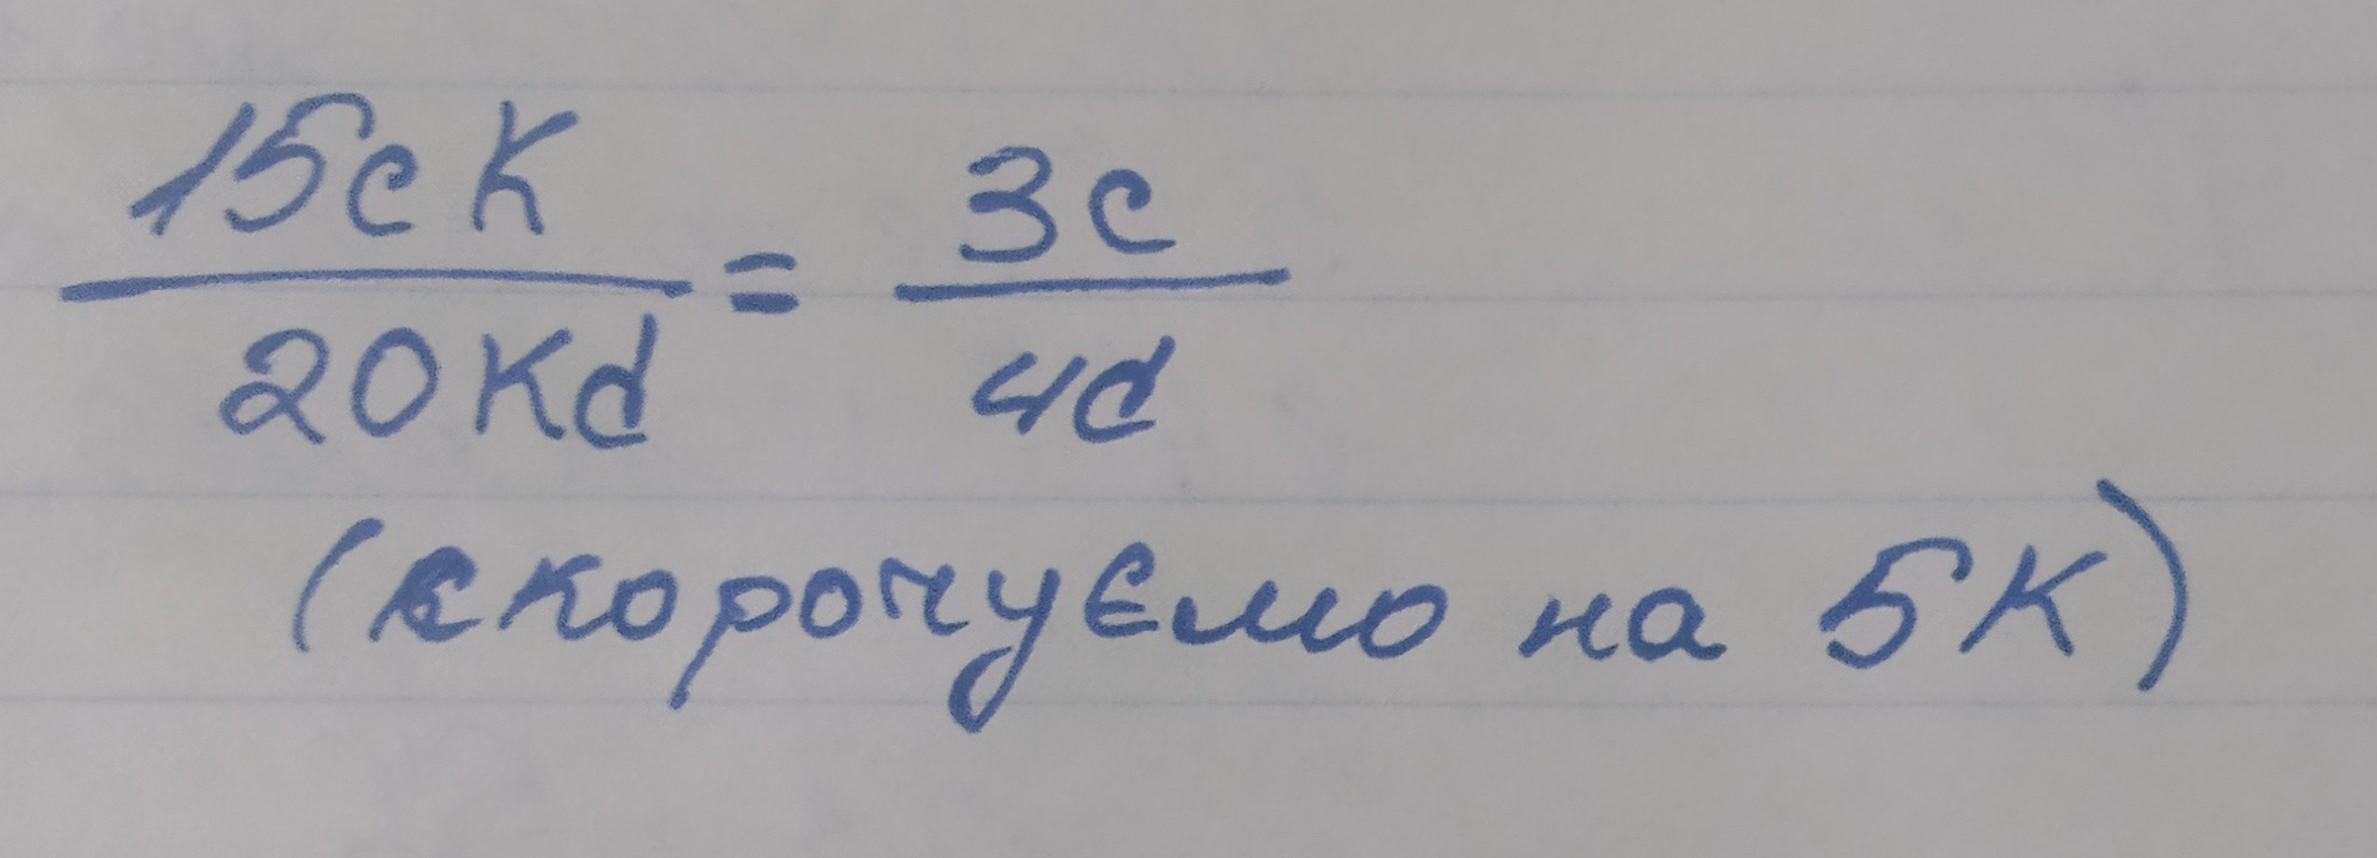 15cK / 20Kd = 3c / 4d
(скорочуємо на 5K)